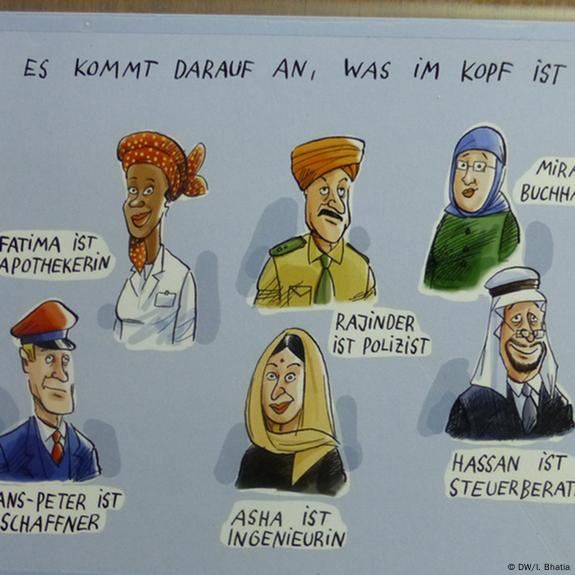 ES KOMMT DARAUF AN, WAS IM KOPF IST
MIRA
BUCHHA
FATIMA IST
APOTHEKERIN
RAJINDER
IST POLIZIST
HASSAN IST
STEUERBERAT
ANS-PETER IST
SCHAFFNER
ASHA IST
INGENIEURIN
© DW/I. Bhatia